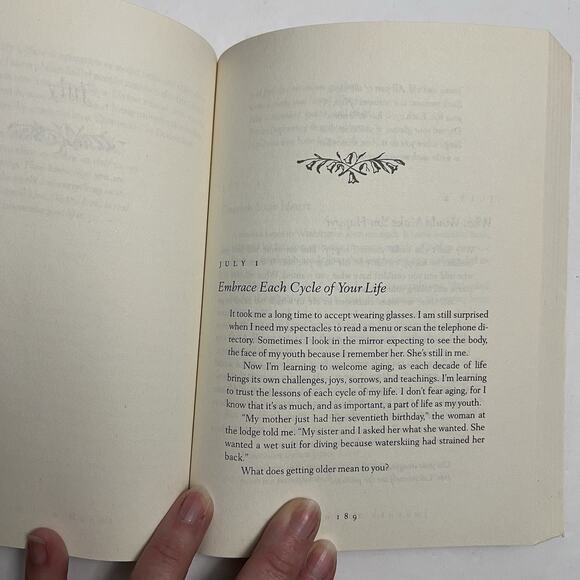 JULY 1
Embrace Each Cycle of Your Life
It took me a long time to accept wearing glasses. I am still surprised
when I need my spectacles to read a menu or scan the telephone di-
rectory. Sometimes I look in the mirror expecting to see the body,
the face of my youth because I remember her. She's still in me.
Now I'm learning to welcome aging, as each decade of life
brings its own challenges, joys, sorrows, and teachings. I'm learning
to trust the lessons of each cycle of my life. I don't fear aging, for I
know that it's as much, and as important, a part of life as my youth.
"My mother just had her seventieth birthday," the woman at
the lodge told me. "My sister and I asked her what she wanted. She
wanted a wet suit for diving because waterskiing had strained her
back."
What does getting older mean to you?
189